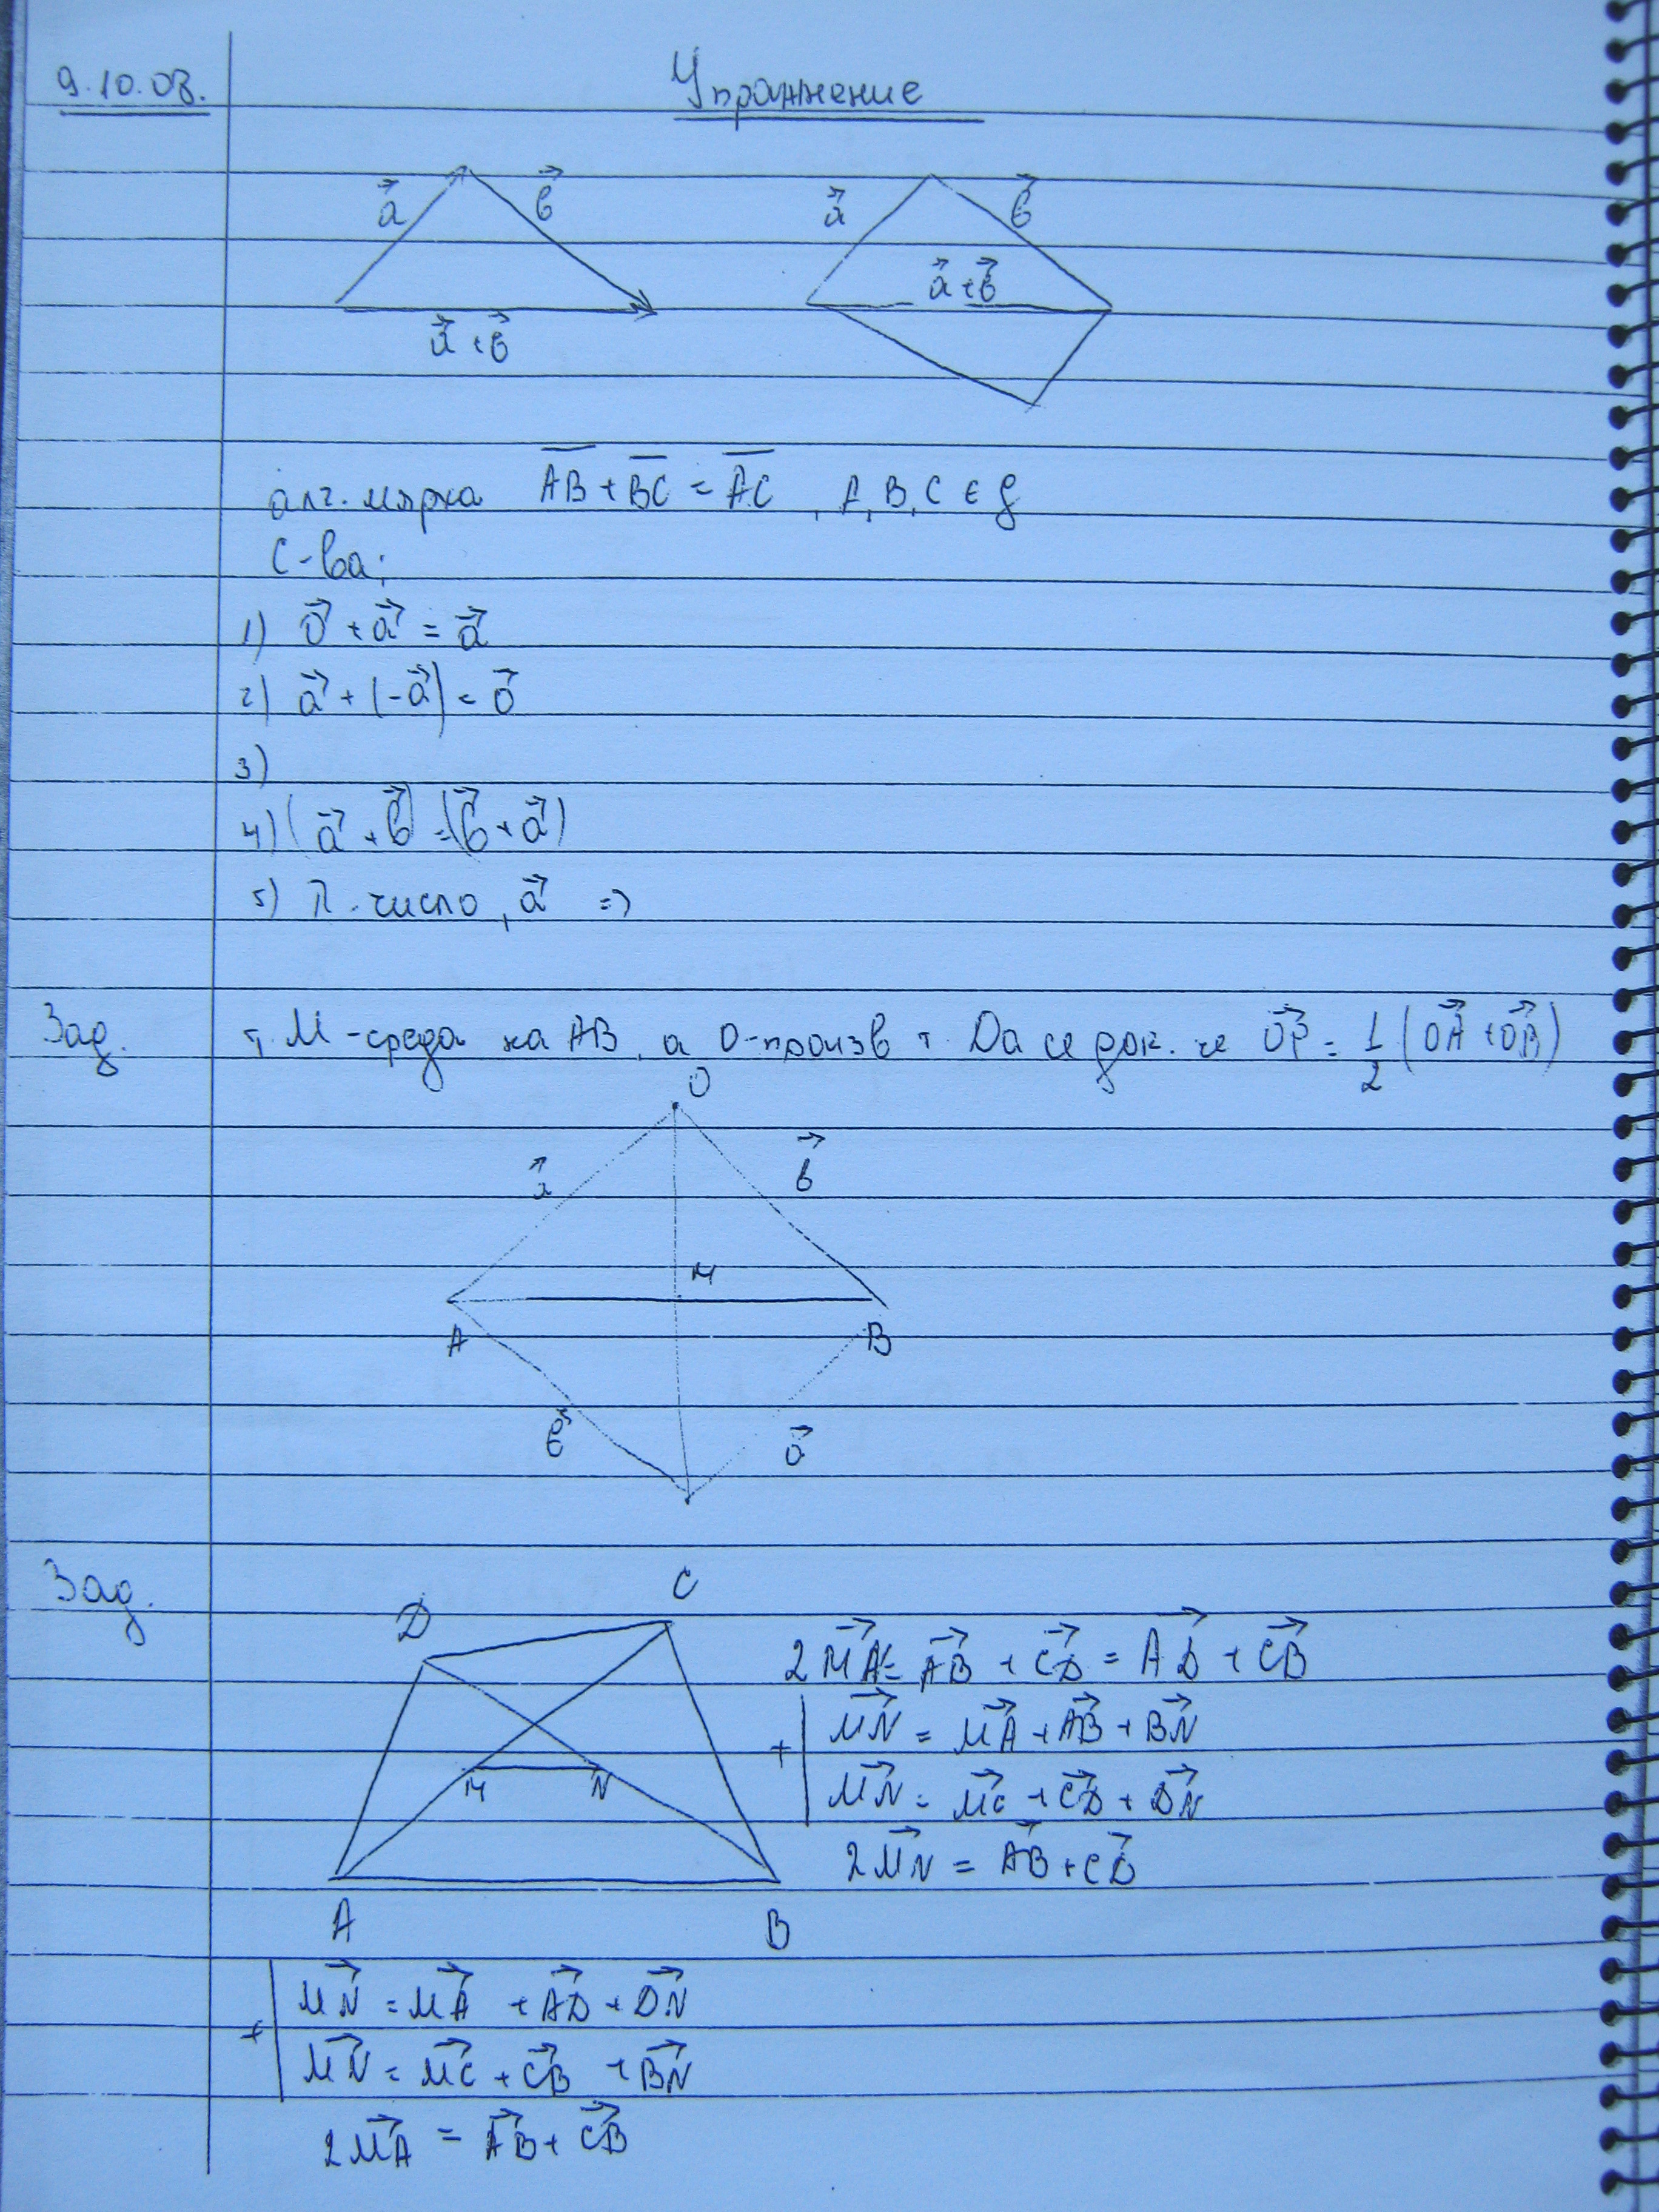 9.10.08. Упражнение
a⃗ b⃗ a⃗ b⃗
a⃗+b⃗
a⃗+b⃗
алг. мярка A̅B̅ + B̅C̅ = A̅C̅ , A, B, C ∈ g
С-ва:
1) 0⃗ + a⃗ = a⃗
2) a⃗ + (-a⃗) = 0⃗
3)
4) (a⃗ + b⃗) = (b⃗ + a⃗)
5) λ-число, a⃗ =>
Зад. т. M-среда на AB, а O-произв т. Да се док. че OP⃗ = 1/2 (OA⃗ + OB⃗)
O
a⃗ b⃗
M
A B
b⃗ a⃗
Зад. C
D
2MA⃗ = AB⃗ + CD⃗ = AD⃗ + CB⃗
+ | MN⃗ = MA⃗ + AB⃗ + BN⃗
M N
| MN⃗ = MC⃗ + CD⃗ + DN⃗
2MN⃗ = AB⃗ + CD⃗
A B
+ | MN⃗ = MA⃗ + AD⃗ + DN⃗
| MN⃗ = MC⃗ + CB⃗ + BN⃗
2MA⃗ = AB⃗ + CB⃗